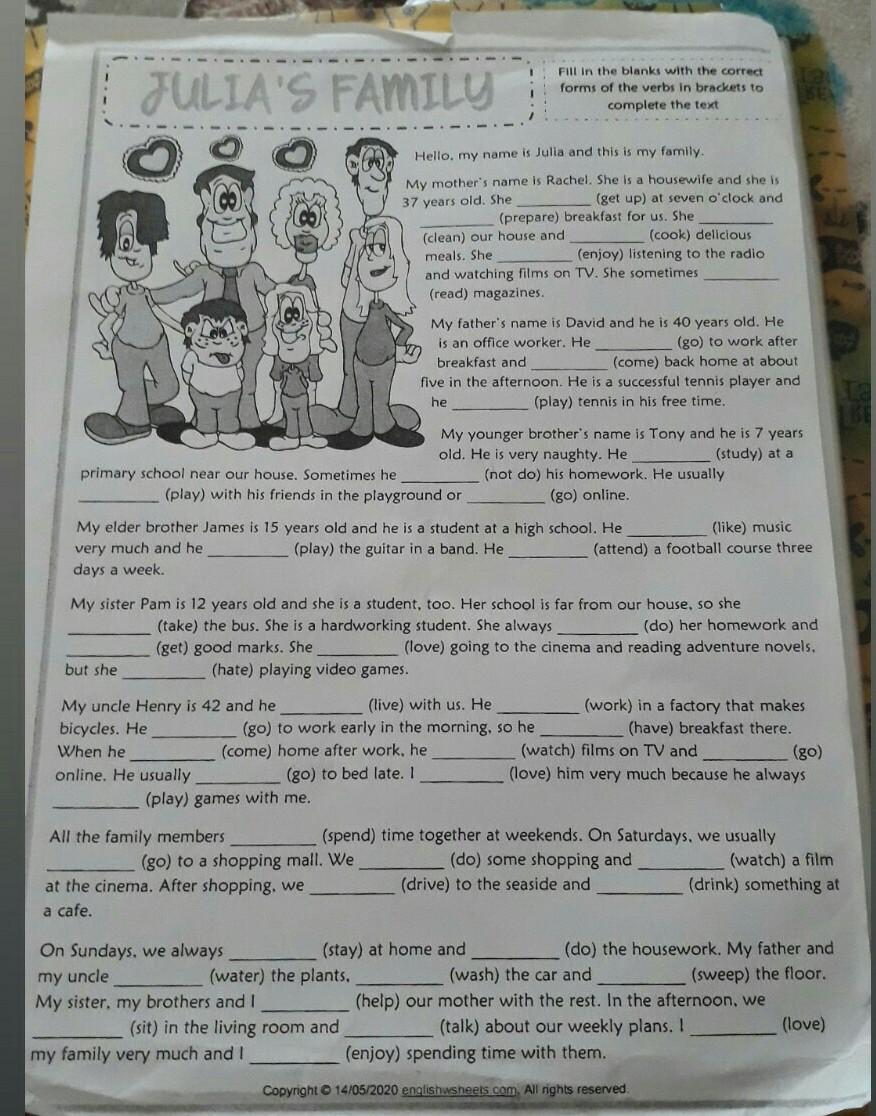 JULIA'S FAMILY
Fill in the blanks with the correct
forms of the verbs in brackets to
complete the text
Hello, my name is Julia and this is my family.
My mother's name is Rachel. She is a housewife and she is
37 years old. She ________ (get up) at seven o'clock and
________ (prepare) breakfast for us. She ________
(clean) our house and ________ (cook) delicious
meals. She ________ (enjoy) listening to the radio
and watching films on TV. She sometimes ________
(read) magazines.
My father's name is David and he is 40 years old. He
is an office worker. He ________ (go) to work after
breakfast and ________ (come) back home at about
five in the afternoon. He is a successful tennis player and
he ________ (play) tennis in his free time.
My younger brother's name is Tony and he is 7 years
old. He is very naughty. He ________ (study) at a
primary school near our house. Sometimes he ________ (not do) his homework. He usually
________ (play) with his friends in the playground or ________ (go) online.
My elder brother James is 15 years old and he is a student at a high school. He ________ (like) music
very much and he ________ (play) the guitar in a band. He ________ (attend) a football course three
days a week.
My sister Pam is 12 years old and she is a student, too. Her school is far from our house, so she
________ (take) the bus. She is a hardworking student. She always ________ (do) her homework and
________ (get) good marks. She ________ (love) going to the cinema and reading adventure novels,
but she ________ (hate) playing video games.
My uncle Henry is 42 and he ________ (live) with us. He ________ (work) in a factory that makes
bicycles. He ________ (go) to work early in the morning, so he ________ (have) breakfast there.
When he ________ (come) home after work, he ________ (watch) films on TV and ________ (go)
online. He usually ________ (go) to bed late. I ________ (love) him very much because he always
________ (play) games with me.
All the family members ________ (spend) time together at weekends. On Saturdays, we usually
________ (go) to a shopping mall. We ________ (do) some shopping and ________ (watch) a film
at the cinema. After shopping, we ________ (drive) to the seaside and ________ (drink) something at
a cafe.
On Sundays, we always ________ (stay) at home and ________ (do) the housework. My father and
my uncle ________ (water) the plants, ________ (wash) the car and ________ (sweep) the floor.
My sister, my brothers and I ________ (help) our mother with the rest. In the afternoon, we
________ (sit) in the living room and ________ (talk) about our weekly plans. I ________ (love)
my family very much and I ________ (enjoy) spending time with them.
Copyright © 14/05/2020 englishwsheets.com. All rights reserved.